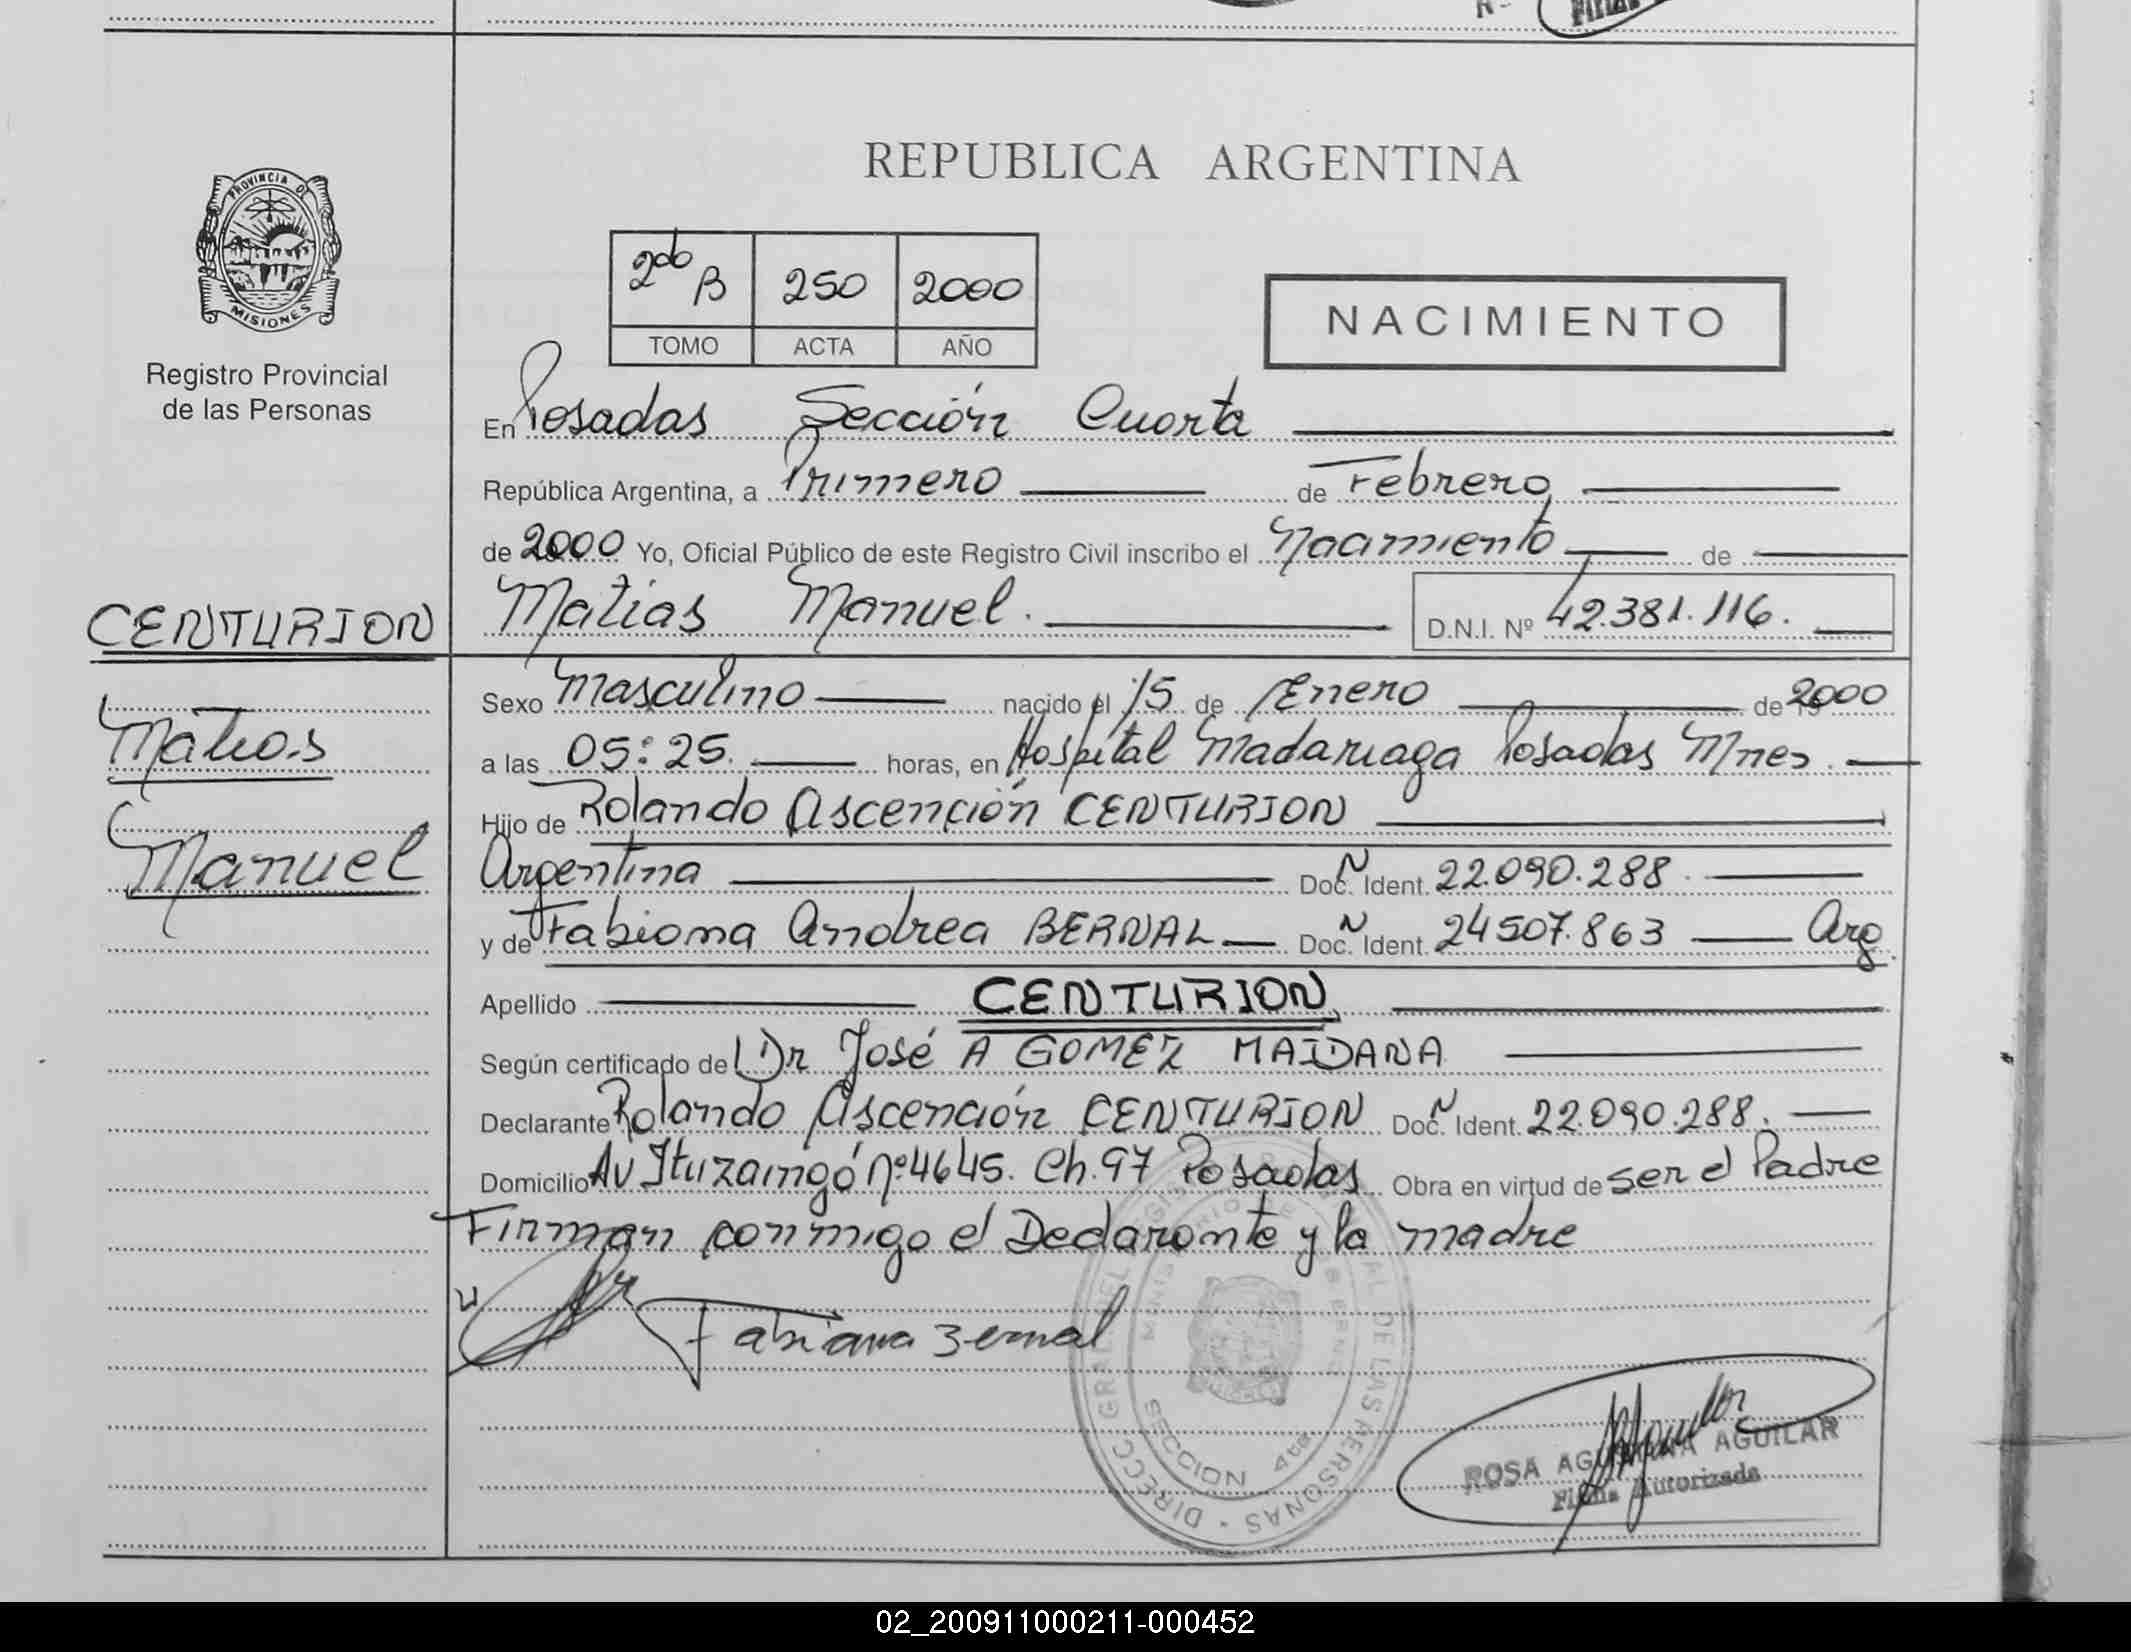 PROVINCIA DE
MISIONES
Registro Provincial
de las Personas
CENTURION
Matias
Manuel
REPUBLICA ARGENTINA
2do B 250 2000
TOMO ACTA AÑO
NACIMIENTO
En Posadas Sección Cuarta
República Argentina, a Primero de Febrero
de 2000 Yo, Oficial Público de este Registro Civil inscribo el Nacimiento de
Matias Manuel. D.N.I. Nº 42.381.116.
Sexo Masculino nacido el 15 de Enero de 2000
a las 05:25. horas, en Hospital Madariaga Posadas Mnes.
Hijo de Rolando Ascención CENTURION
Argentina Doc. N Ident. 22.090.288
y de Fabiana Andrea BERNAL Doc. N Ident. 24507.863 Arg.
Apellido CENTURION
Según certificado de Dr José A GOMEZ MAIDANA
Declarante Rolando Ascención CENTURION Doc. N Ident. 22.090.288.
Domicilio Av Ituzaingó Nº 4645. Ch. 97 Posadas Obra en virtud de ser el Padre
Firman conmigo el Declarante y la madre
Fabiana Bernal
DIRECC GRAL DEL REGIS AL DE LAS PERSONAS
MINISTERIO DE GOBIERNO
SECCION 4ta
ROSA AGUILAR
Firma Autorizada
02_200911000211-000452